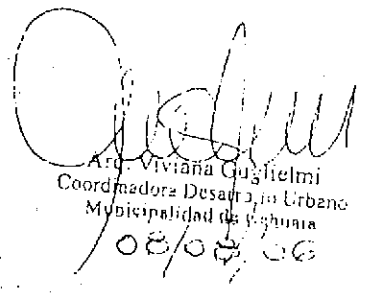 Arq. Viviana Guglielmi
Coordinadora Desarrollo Urbano
Municipalidad de Ushuaia
08/08/06